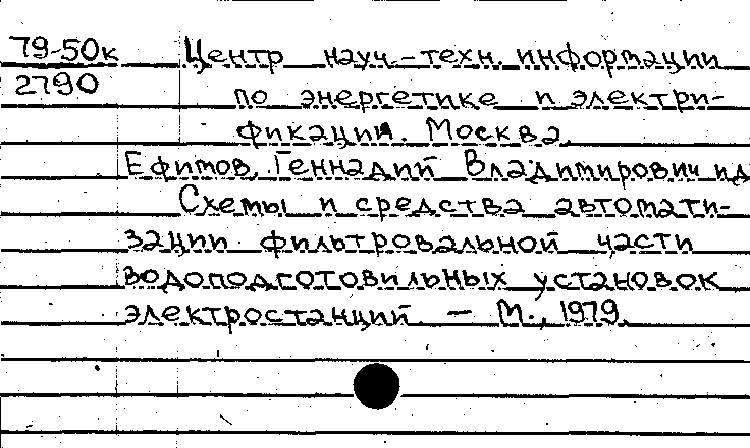 79-50к Центр науч.-техн. информации
2790 по энергетике и электри-
фикации. Москва.
Ефимов, Геннадий Владимирович и др
Схемы и средства автомати-
зации фильтровальной части
водоподготовильных установок
электростанций. — М., 1979.